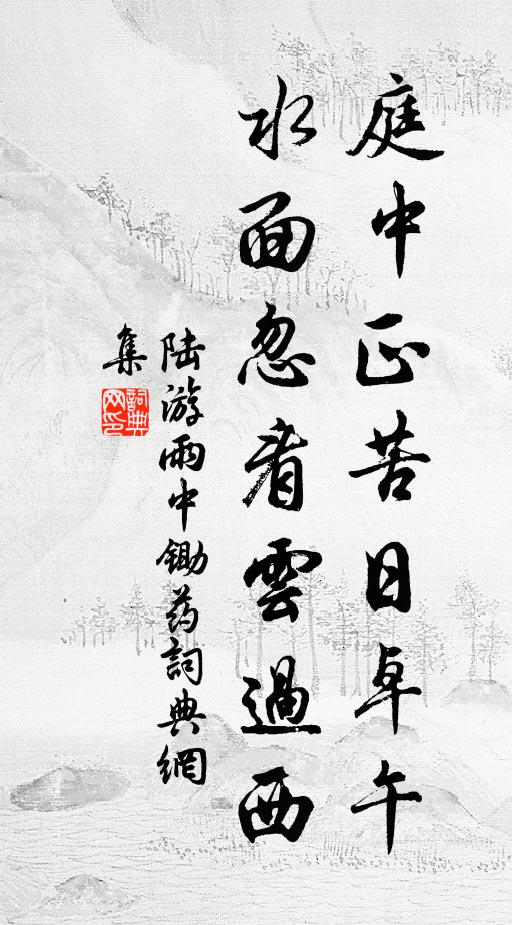 庭中正苦日卓午
水面忽看雲過西
陆游雨中锄药詞典網
集
詞典网印